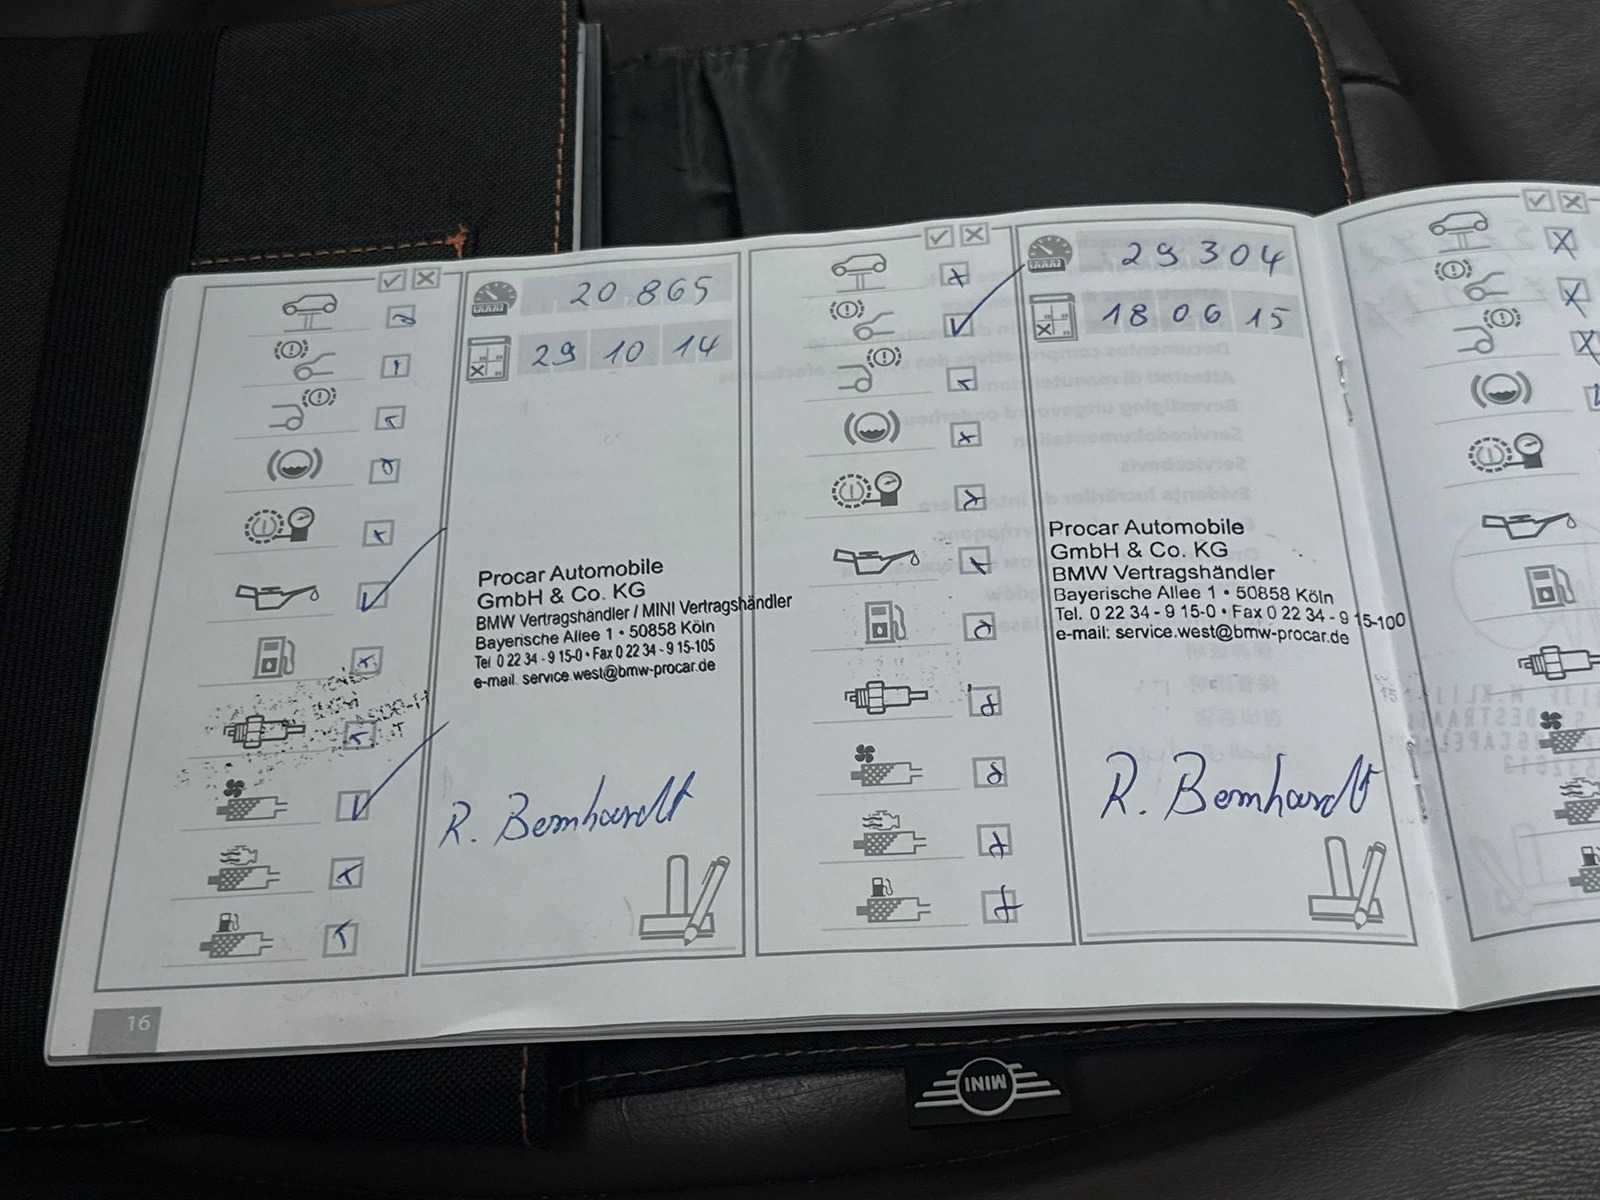 20 865
29 10 14
Procar Automobile
GmbH & Co. KG
BMW Vertragshändler / MINI Vertragshändler
Bayerische Allee 1 • 50858 Köln
Tel 0 22 34 - 9 15-0 • Fax 0 22 34 - 9 15-105
e-mail service.west@bmw-procar.de
R. Bernhardt
16
29 304
18 06 15
Procar Automobile
GmbH & Co. KG
BMW Vertragshändler
Bayerische Allee 1 • 50858 Köln
Tel. 0 22 34 - 9 15-0 • Fax 0 22 34 - 9 15-100
e-mail: service.west@bmw-procar.de
R. Bernhardt
MINI